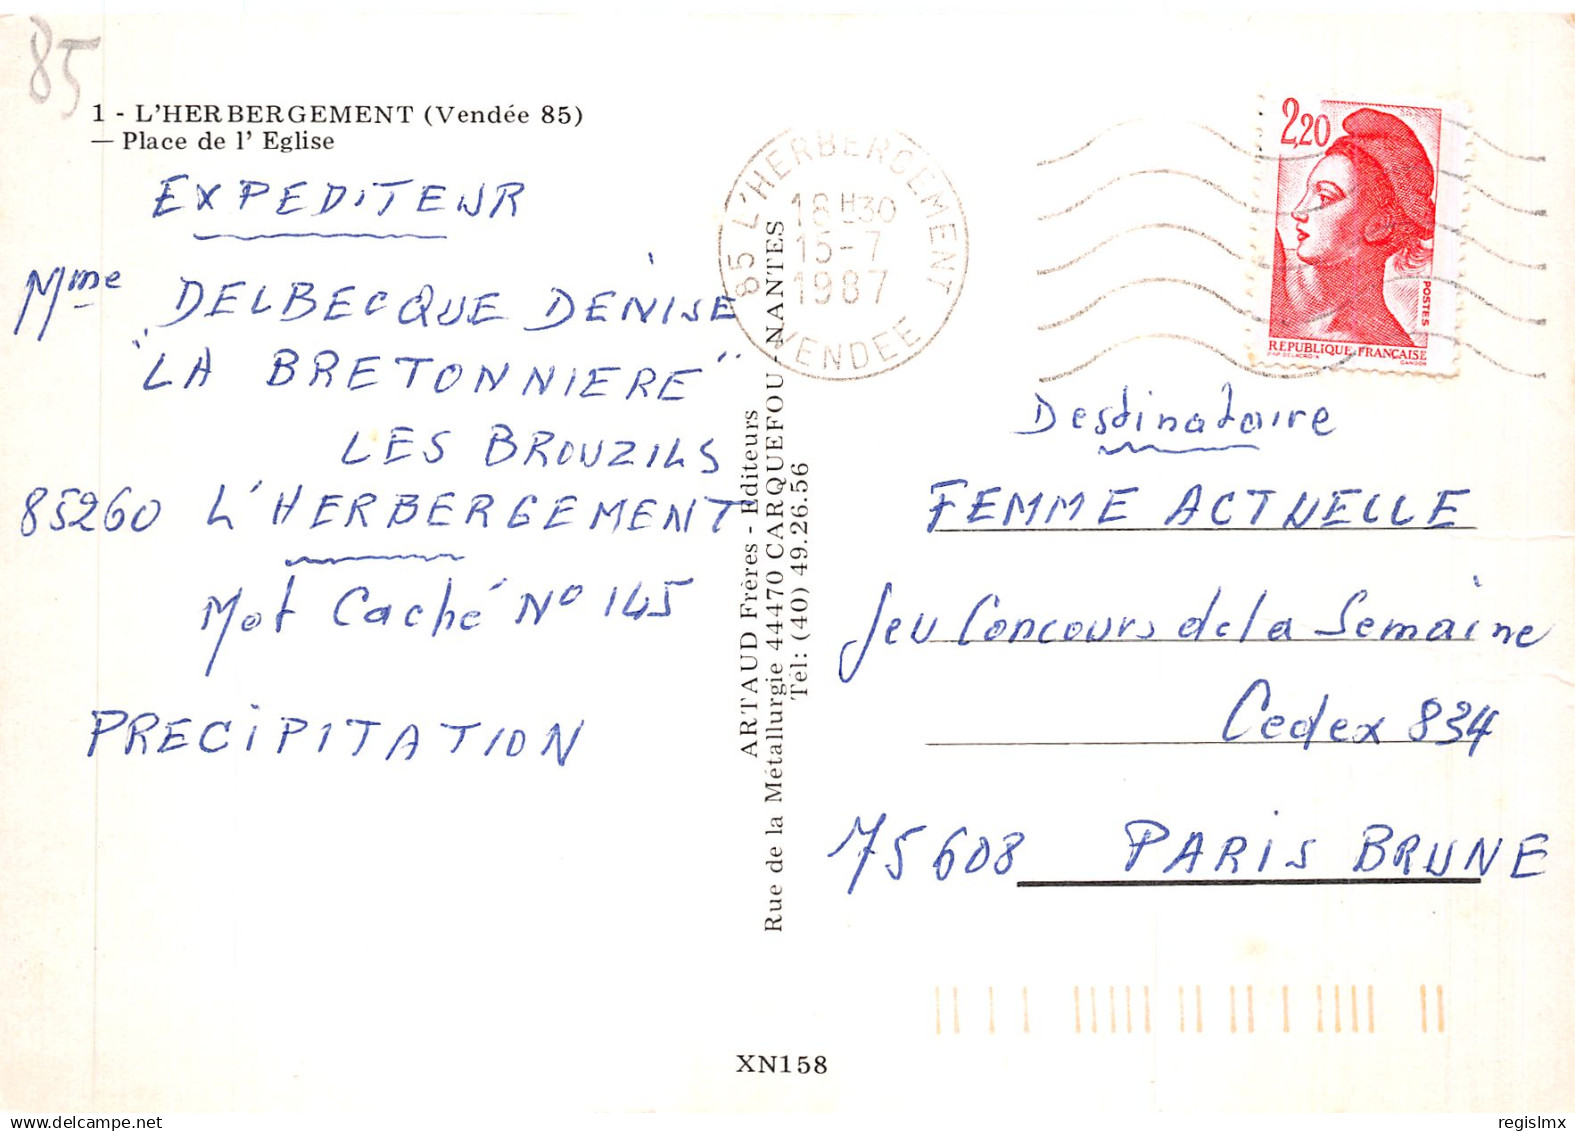 85
1 - L'HERBERGEMENT (Vendée 85)
— Place de l' Eglise
EXPEDITEUR
Mme DELBECQUE DENISE
"LA BRETONNIERE"
LES BROUZILS
85260 L'HERBERGEMENT
Mot Caché N° 145
PRECIPITATION
ARTAUD Frères - Editeurs
Rue de la Métallurgie 44470 CARQUEFOU - NANTES
Tél: (40) 49.26.56
XN158
85 L'HERBERGEMENT
18H30
15-7
1987
VENDEE
2,20
POSTES
REPUBLIQUE FRANÇAISE
D'AP DELACROIX GANDON
Destinataire
FEMME ACTUELLE
Jeu Concours de la Semaine
Cedex 834
75608 PARIS BRUNE
regislmx